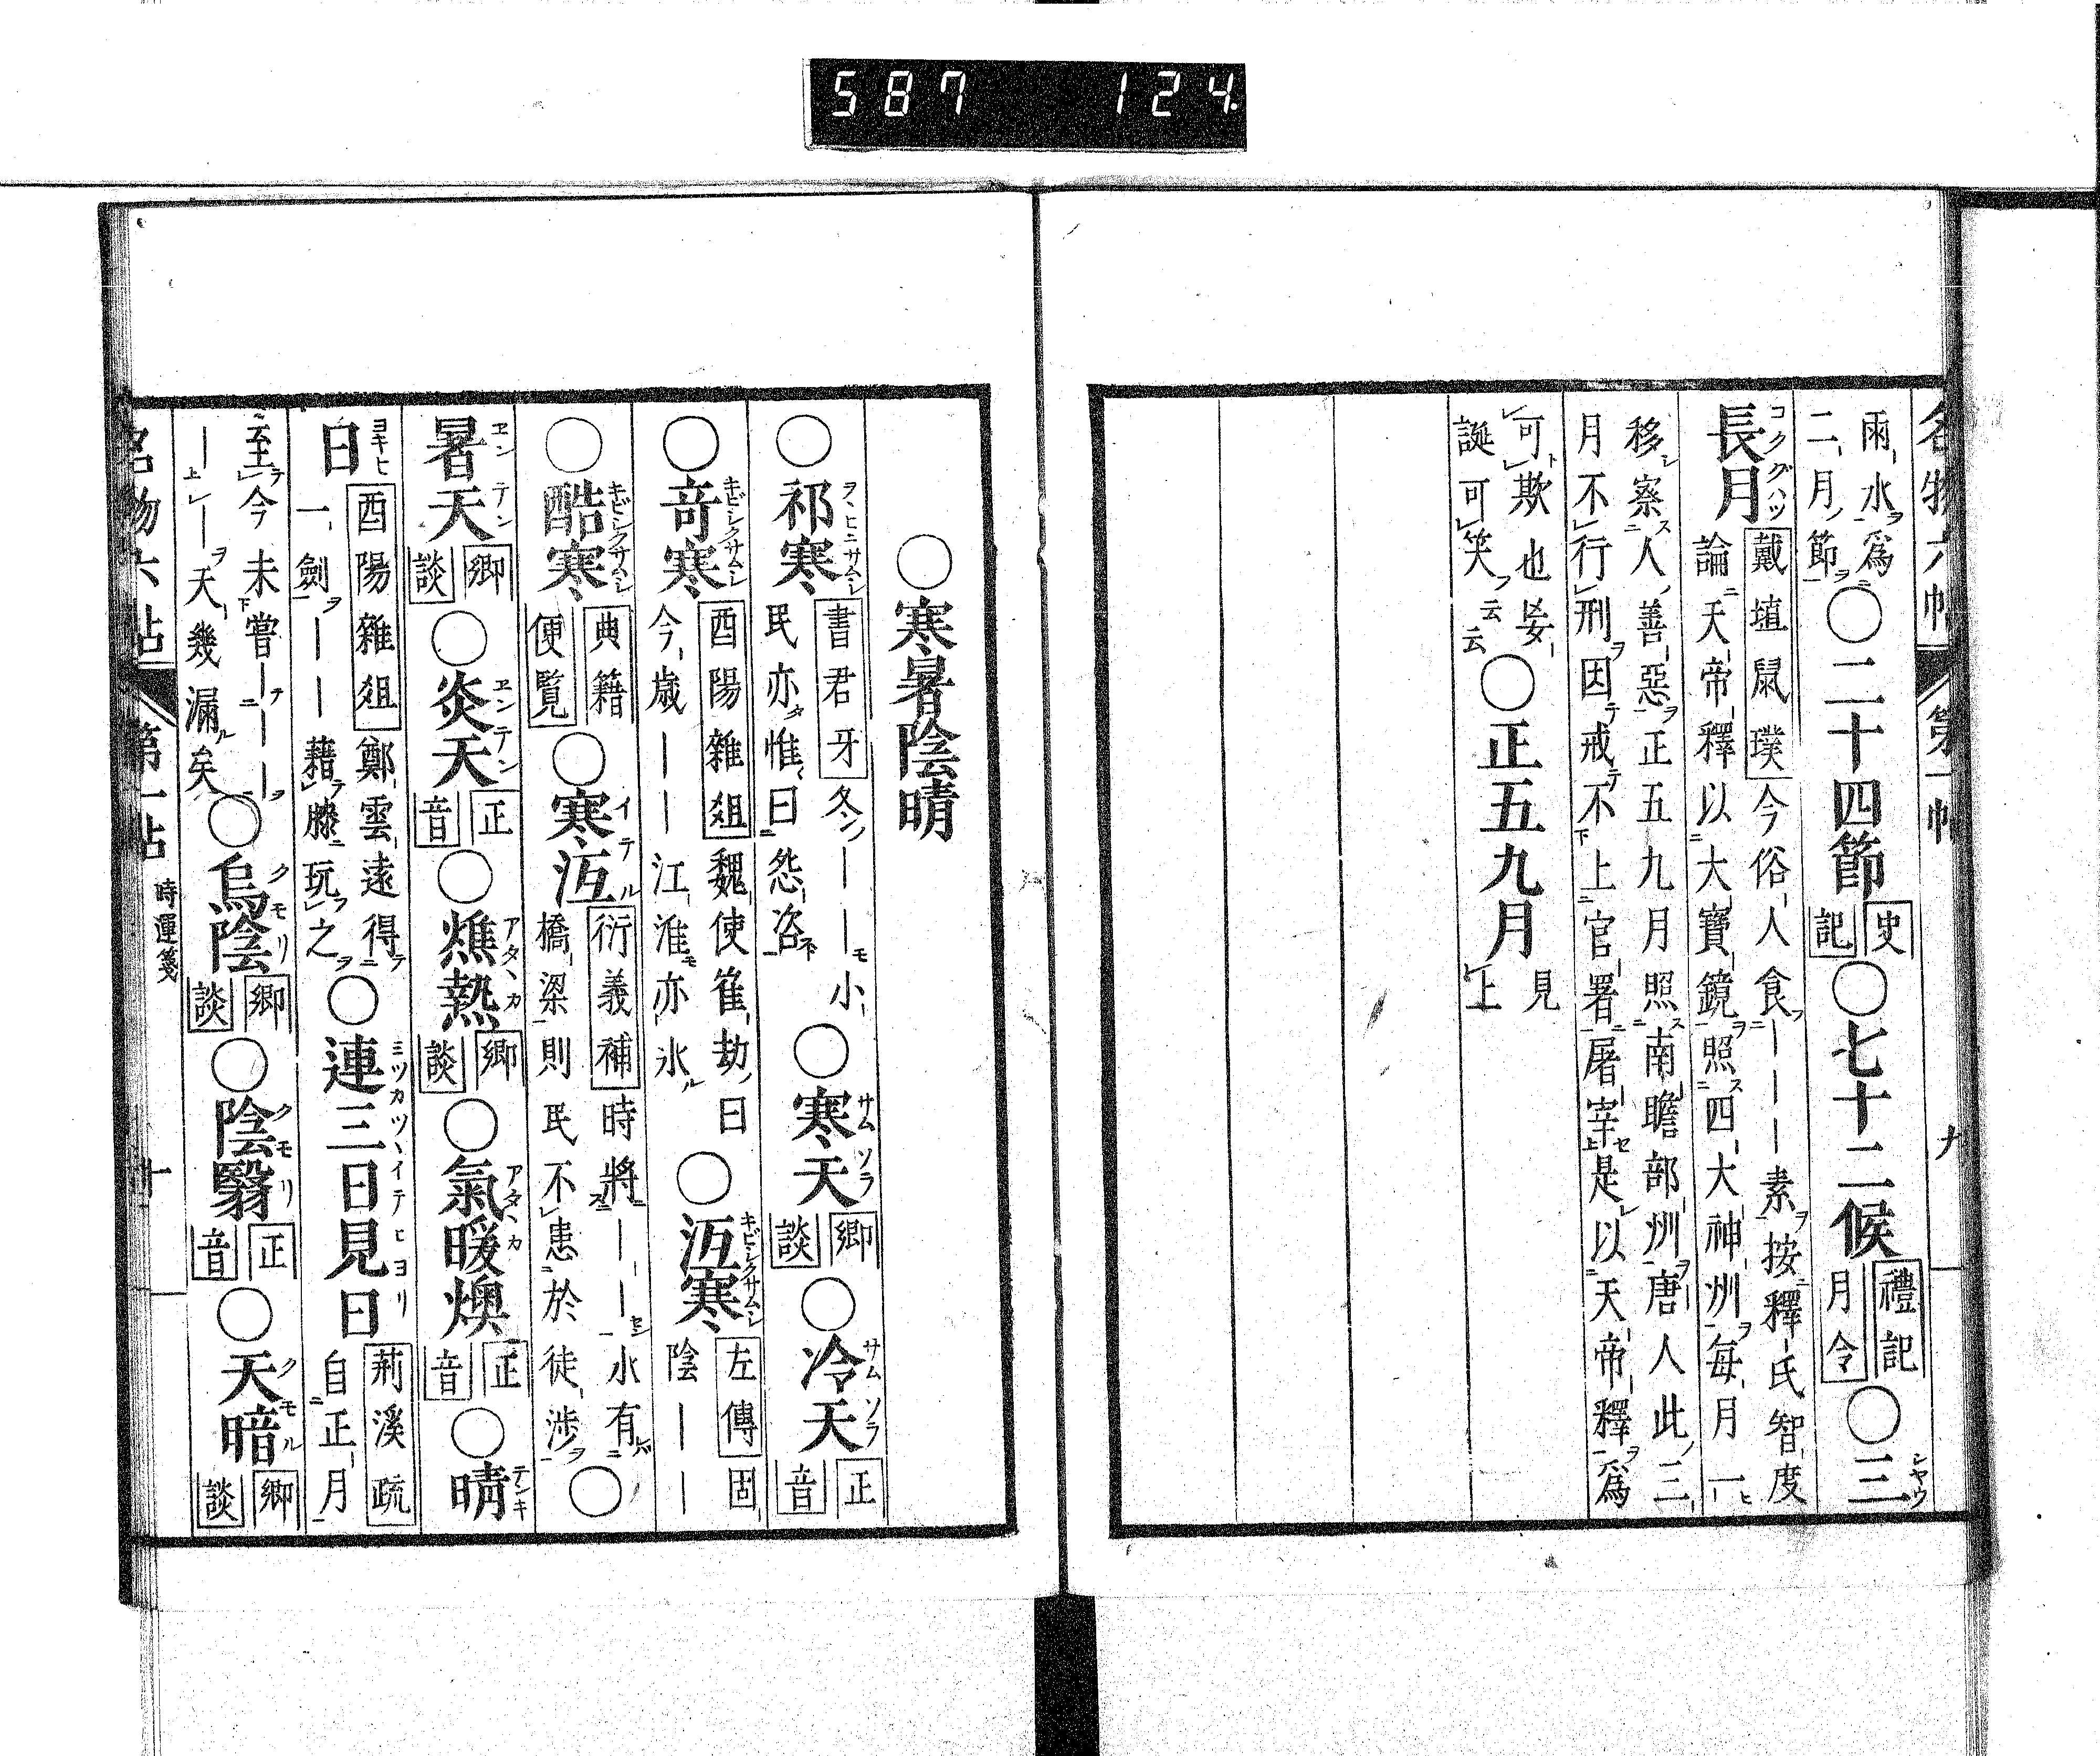 587 124.
名物六帖 第一帖 九
雨水爲
二月節
○二十四節 史記 ○七十二候 禮記月令 ○三
長月 戴埴鼠璞 今俗人食―――素按釋氏智度
論天帝釋以大寶鏡照四大神洲每月一
移察人善惡正五九月照南瞻部洲唐人此三
月不行刑因戒不上官署屠宰是以天帝釋爲
可欺也妄
誕可笑云云
○正五九月 見上
○寒暑陰晴
○祁寒 書君牙 冬――小
民亦惟曰怨咨
○寒天 鄉談 ○冷天 正音
○奇寒 酉陽雜俎 魏使崔劼曰
今歲――江淮亦氷
○沍寒 左傳 固
陰――
○酷寒 典籍便覽 ○寒沍 衍義補 時將――水有
橋梁則民不患於徒涉
○
暑天 鄉談 ○炎天 正音 ○燋熱 鄉談 ○氣暖燠 正音 ○晴
日 酉陽雜俎 鄭雲逵得
一劍―――藉膝玩之
○連三日見日 荊溪疏
自正月
至今未嘗―――
――天幾漏矣
○烏陰 鄉談 ○陰翳 正音 ○天暗 鄉談
名物六帖 第一帖 時運箋 十